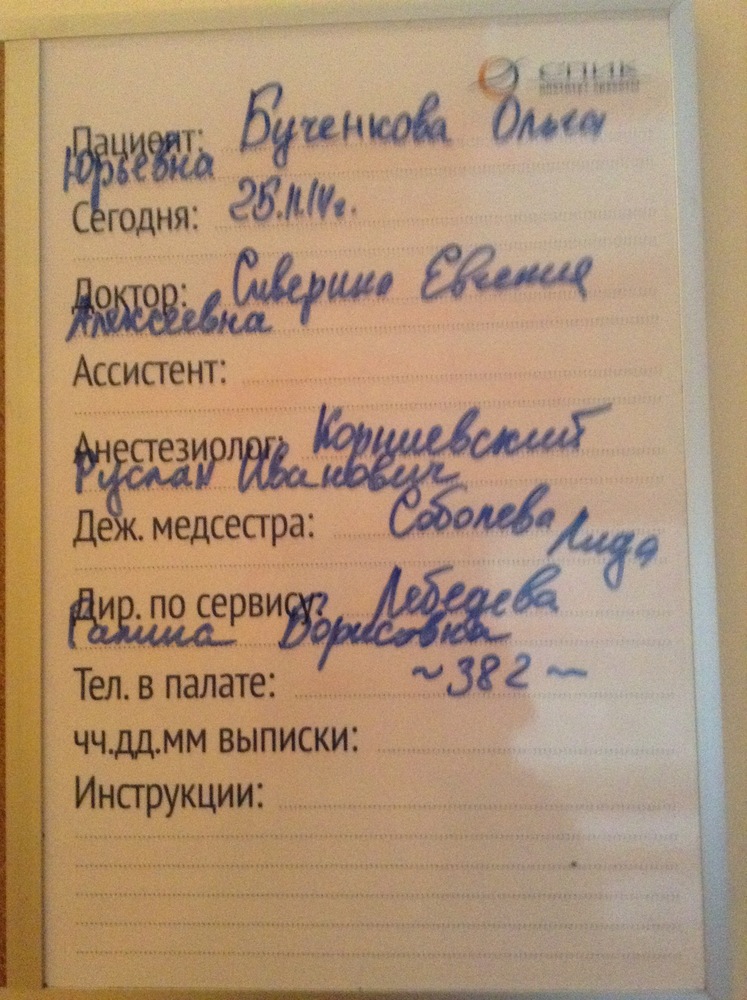 СПИК
ИНСТИТУТ КРАСОТЫ
Пациент: Бученкова Ольга
Юрьевна
Сегодня: 25.11.14г.
Доктор: Сиверина Евгения
Алексеевна
Ассистент:
Анестезиолог: Корниевский
Руслан Иванович
Деж. медсестра: Соболева Лида
Дир. по сервису: Лебедева
Галина Борисовна
Тел. в палате: ~ 382 ~
чч.дд.мм выписки:
Инструкции: